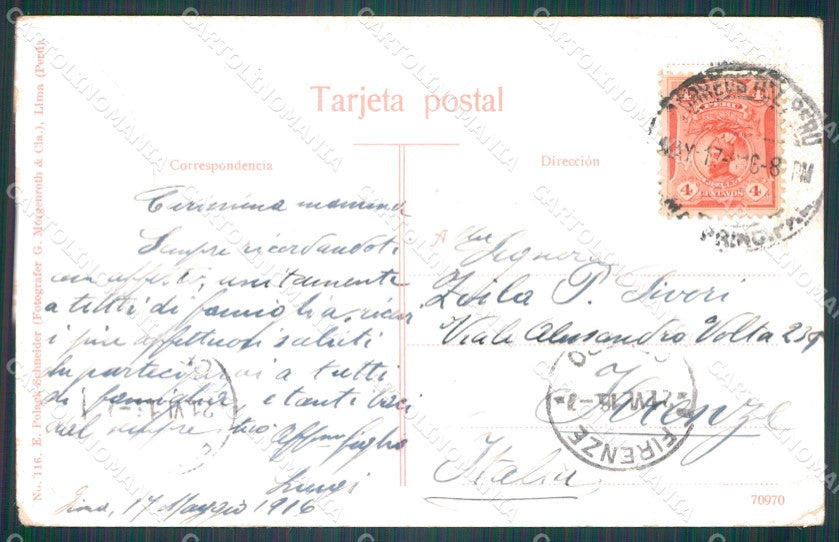 Tarjeta postal
Correspondencia
Dirección
CORREOS DEL PERU
MAY 17 16-8 PM
PRINCIPAL
4 CENTAVOS 4
Carissima mamma
Sempre ricordandoti
con affetto, unitamente
a tutti di famiglia, ricevi
i più affettuosi saluti
da partecipar a tutti
di famiglia, e tanti baci
dal sempre tuo affmo figlio
Luigi
Lima, 17 Maggio 1916
A
Signora
Zoila P. Siveri
Viale Alessandro Volta
Firenze
Italia
FIRENZE
21 VI
70970
No. 116. E. Polack-Schneider (Fotografer G. Morgenroth & Cia.), Lima (Perú).
CARTOLINOMANIA